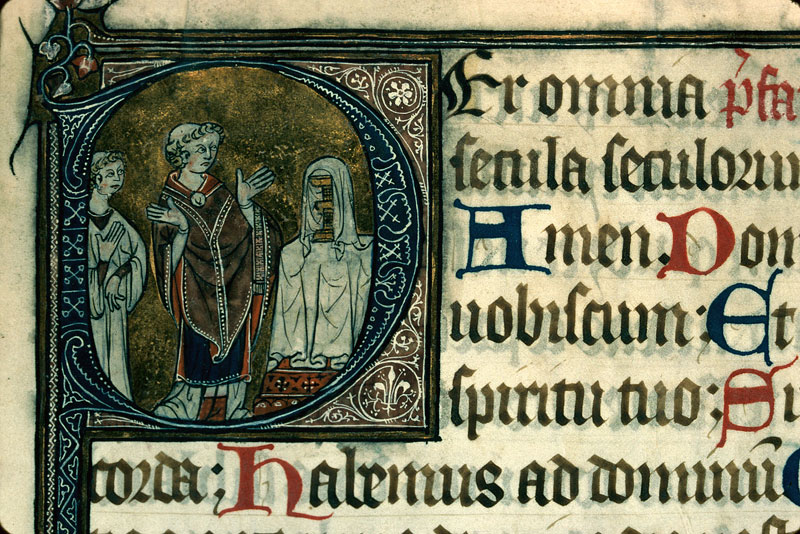 Per omnia p̄fa
secula seculorum
Amen. Dom
uobiscum: Et
spiritu tuo: Su
corda: Habemus ad dominū